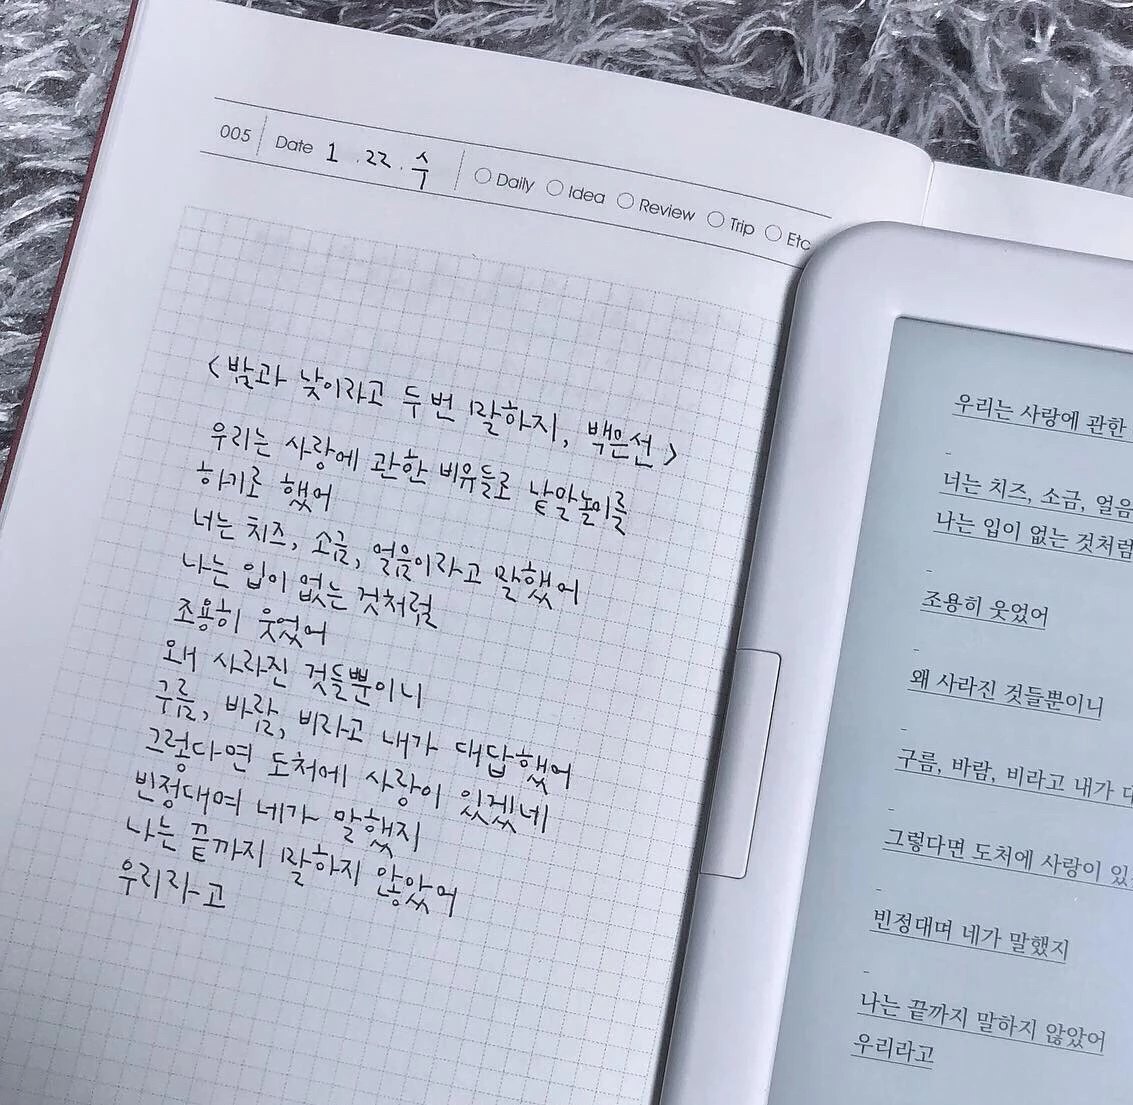 005 Date 1 . 22 . 수 Daily Idea Review Trip Etc
<밤과 낮이라고 두번 말하지, 백은선>
우리는 사랑에 관한 비유들로 낱말놀이를
하기로 했어
너는 치즈, 소금, 얼음이라고 말했어
나는 입이 없는 것처럼
조용히 웃었어
왜 사라진 것들뿐이니
구름, 바람, 비라고 내가 대답했어
그렇다면 도처에 사랑이 있겠네
빈정대며 네가 말했지
나는 끝까지 말하지 않았어
우리라고
우리는 사랑에 관한
-
너는 치즈, 소금, 얼음
나는 입이 없는 것처럼
-
조용히 웃었어
-
왜 사라진 것들뿐이니
-
구름, 바람, 비라고 내가
-
그렇다면 도처에 사랑이 있
-
빈정대며 네가 말했지
-
나는 끝까지 말하지 않았어
우리라고